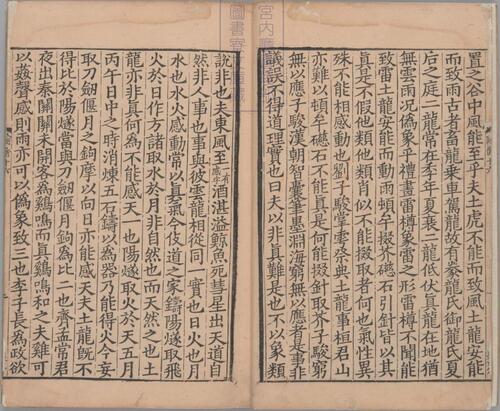 置之谷中風能至乎夫土虎不能而致風土龍安能
而致雨古者畜龍乗車駕龍故有豢龍氏御龍氏夏
后之庭二龍常在季年夏衰二龍低伏眞龍在地猶
無雲雨况偽象乎禮畫雷樽象雷之形雷樽不聞能
致雷土龍安能而動雨頓牟掇芥磁石引針皆以其
眞是不假他類他類肖似不能掇取者何也氣性異
殊不能相感動也劉子駿掌雩祭典土龍事桓君山
亦難以頓牟磁石不能眞是何能掇針取芥子駿窮
無以應子駿漢朝智囊筆墨淵海窮無以應者是事非
議誤不得道理實也曰夫以非眞難是也不以象類
說非也夫東風至酒湛溢鯨魚死彗星出天道自
然非人事也事與彼雲龍相從同一實也日火也月
水也水火感動常以眞氣今伎道之家鑄陽燧取飛
火於日作方諸取水於月非自然也而天然之也土
龍亦非眞何為不能感天一也陽燧取火於天五月
丙午日中之時消煉五石鑄以為器乃能得火今妄
取刀劒偃月之鉤摩以向日亦能感天夫土龍旣不
得比於陽燧當與刀劒偃月鉤為比二也齊孟常君
夜出秦關關未開客為鷄鳴而眞鷄鳴和之夫雞可
以姦聲感則雨亦可以偽象致三也李子長為政欲